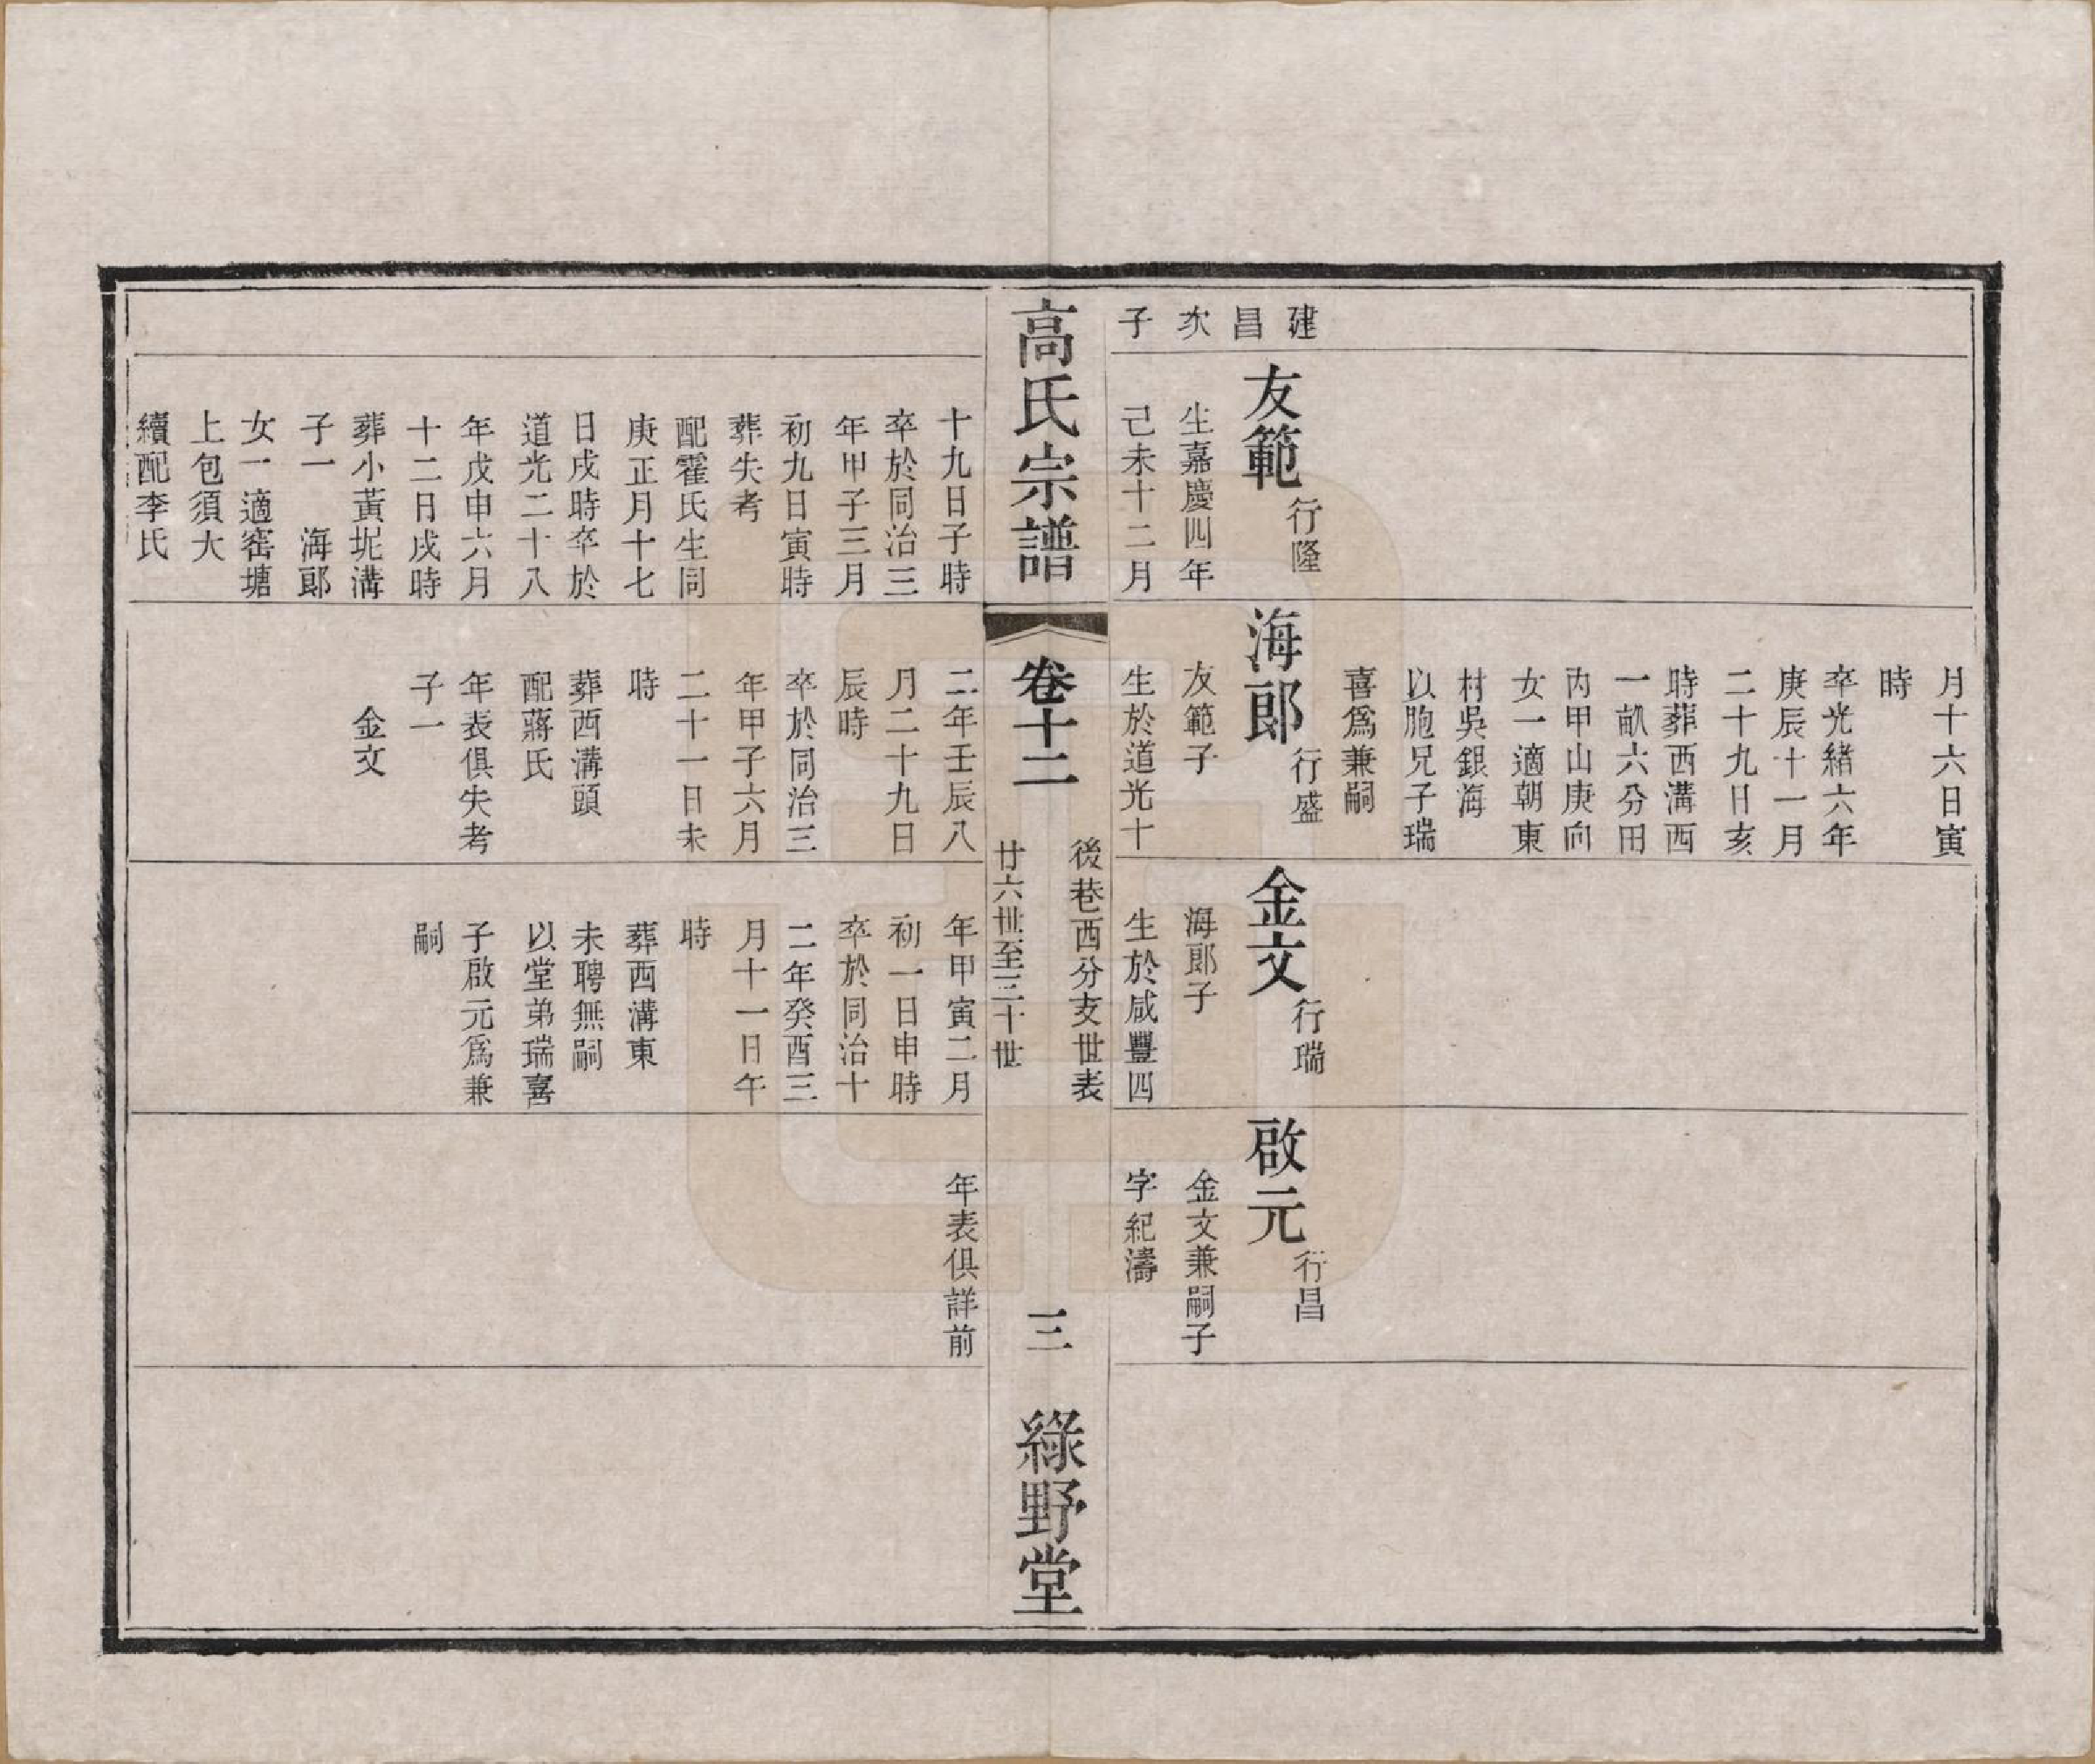 建
昌
次
子
友範
行隆
生嘉慶四年
己未十二月
月十六日寅
時
卒光緒六年
庚辰十一月
二十九日亥
時葬西溝西
一畝六分田
丙甲山庚向
女一適朝東
村吳銀海
以胞兄子瑞
喜爲兼嗣
海郎
行盛
友範子
生於道光十
金文
行瑞
海郎子
生於咸豐四
啟元
行昌
金文兼嗣子
字紀濤
高氏宗譜
卷十二
後巷西分支世表
廿六世至三十世
三
綠野堂
十九日子時
卒於同治三
年甲子三月
初九日寅時
葬失考
配霍氏生同
庚正月十七
日戌時卒於
道光二十八
年戊申六月
十二日戌時
葬小黃坭溝
子一　海郎
女一適窰塘
上包須大
續配李氏
二年壬辰八
月二十九日
辰時
卒於同治三
年甲子六月
二十一日未
時
葬西溝頭
配蔣氏
年表俱失考
子一
金文
年甲寅二月
初一日申時
卒於同治十
二年癸酉三
月十一日午
時
葬西溝東
未聘無嗣
以堂弟瑞喜
子啟元爲兼
嗣
年表俱詳前